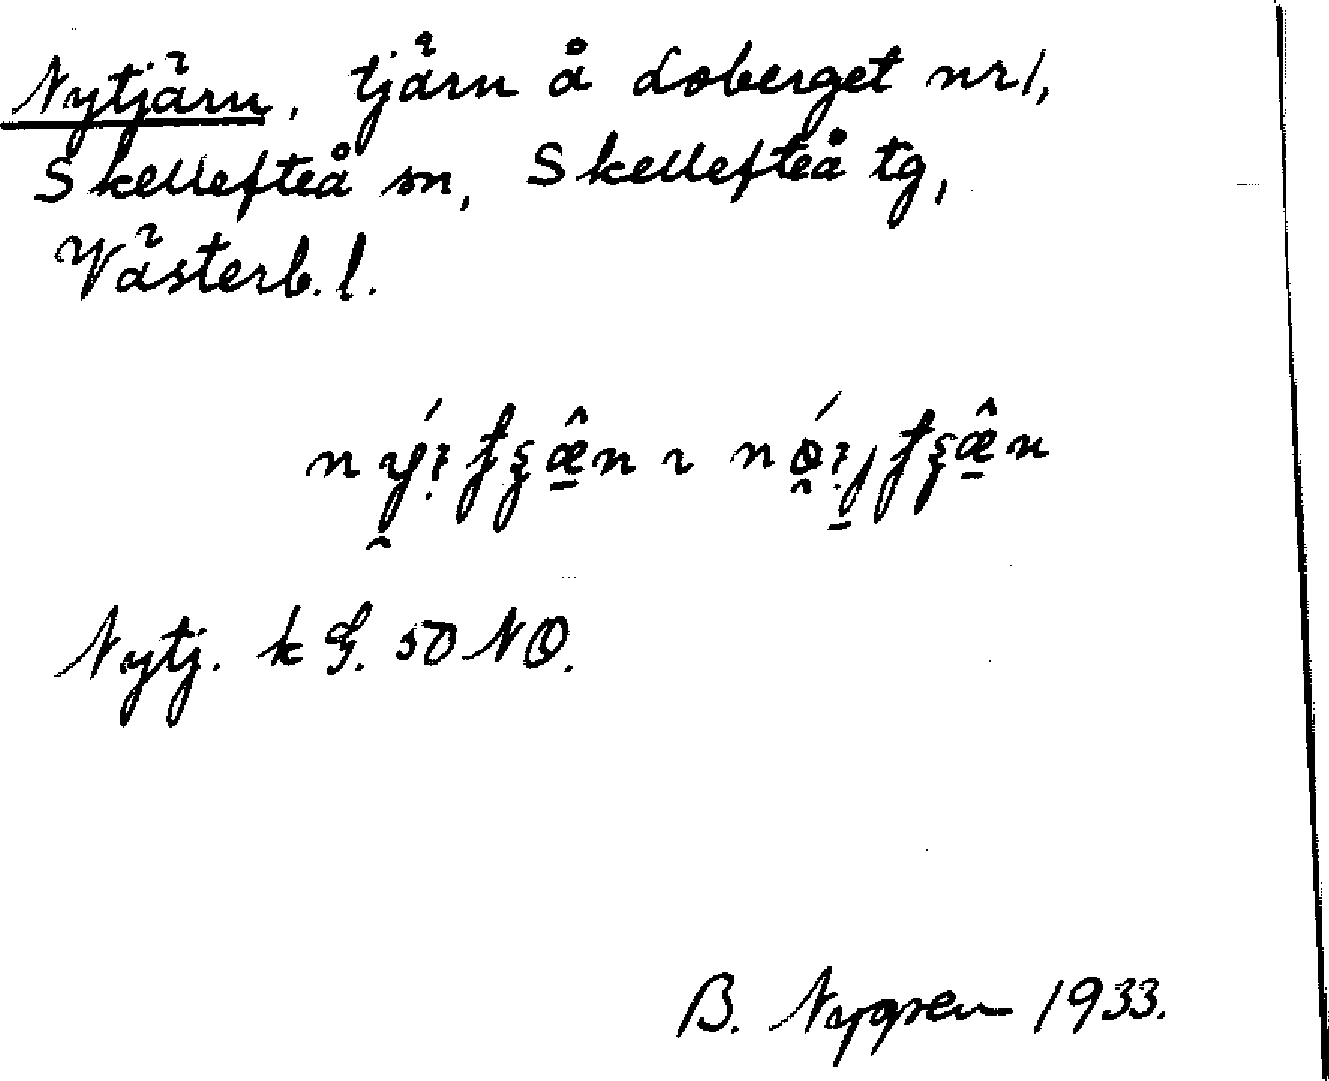 Nytjärn, tjärn å Loberget nr 1,
Skellefteå sn, Skellefteå tg,
Västerb. l.
Nytj. k G. 50 NO.
B. Nygren 1933.